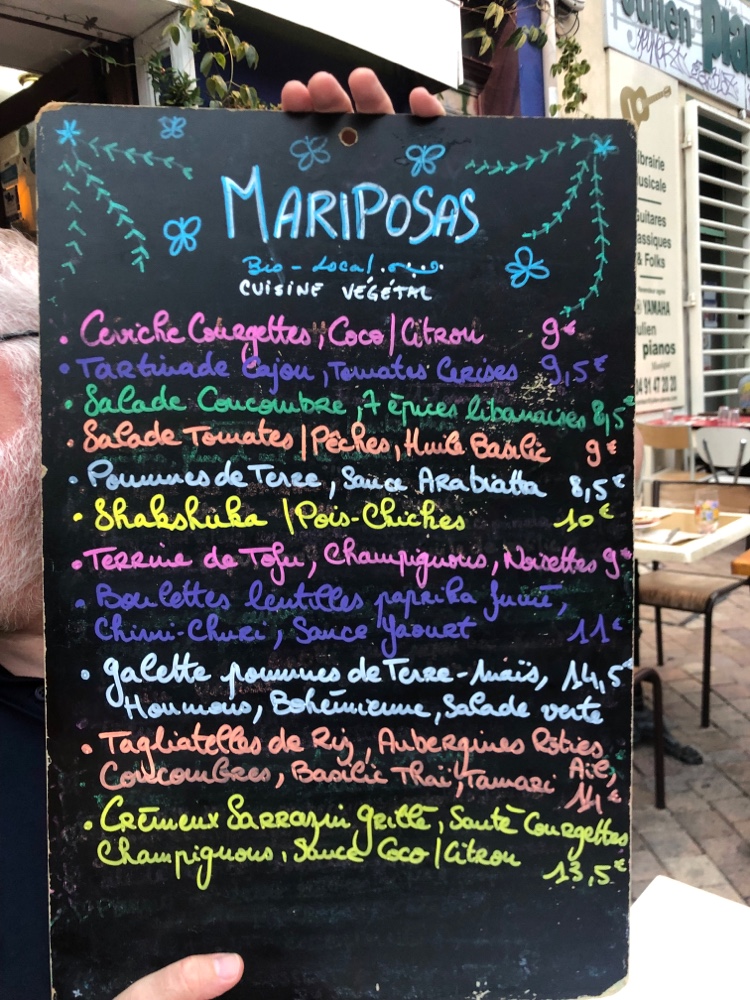 Julien pia
MARIPOSAS
Bio - Local
CUISINE VÉGÉTAL
• Ceviche Courgettes, Coco/Citron 9€
• Tartinade Cajou, Tomates Cerises 9,5€
• Salade Concombre, 7 épices libanaises 8,5€
• Salade Tomates/Pêches, Huile Basilic 9€
• Pommes de Terre, Sauce Arabiatta 8,5€
• Shakshuka /Pois-Chiches 10€
• Terrine de Tofu, Champignons, Noisettes 9€
• Boulettes lentilles paprika fumé,
Chimi-Churi, Sauce Yaourt 11€
• galette pommes de Terre-Maïs, 14,5€
Houmous, Bohémienne, Salade verte
• Tagliatelles de Riz, Aubergines Rôties
Concombres, Basilic Thaï, Tamari Ail,
• Crémeux Sarrazin grillé, Sauté Courgettes
Champignons, Sauce Coco/Citron
13,5€
ibrairie
usicale
Guitares
assiques
& Folks
YAMAHA
ulien
pianos
04 91 47 20 20